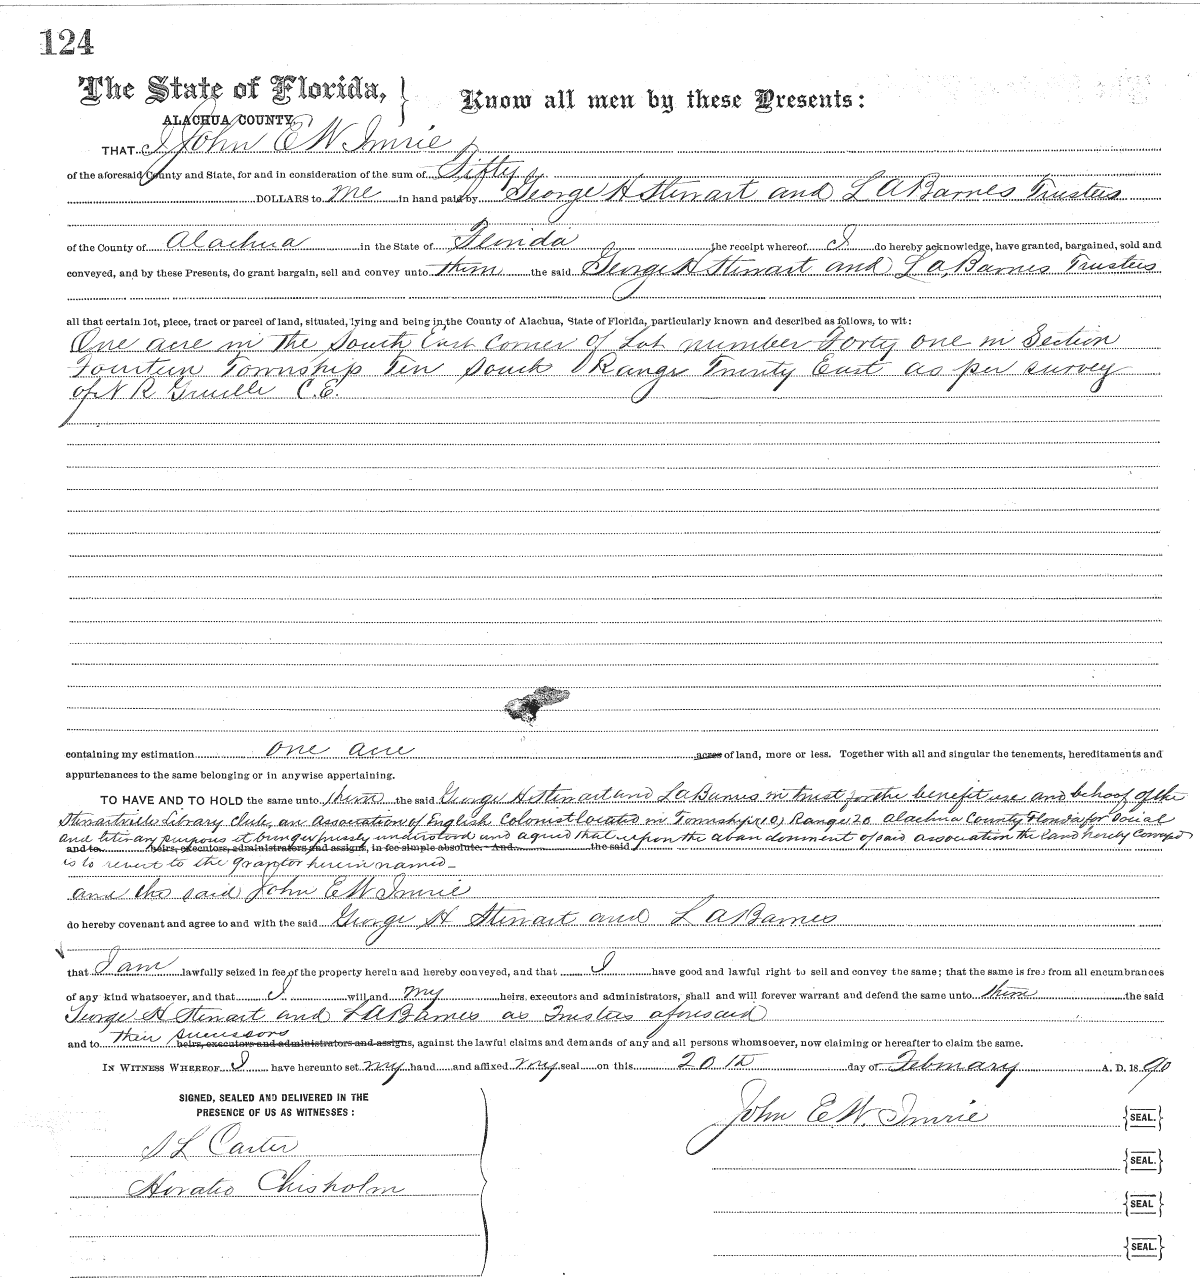 124
The State of Florida, } Know all men by these Presents:
ALACHUA COUNTY.
THAT I John E W Imrie
of the aforesaid County and State, for and in consideration of the sum of Fifty
DOLLARS to me in hand paid by George H Stewart and L A Barnes Trustees
of the County of Alachua in the State of Florida the receipt whereof I do hereby acknowledge, have granted, bargained, sold and
conveyed, and by these Presents, do grant bargain, sell and convey unto them the said George H Stewart and L A Barnes Trustees
all that certain lot, piece, tract or parcel of land, situated, lying and being in the County of Alachua, State of Florida, particularly known and described as follows, to wit:
One acre in the South East corner of Lot number Forty one in Section
Fourteen Township Ten South Range Twenty East as per survey
of N R C.E.
containing my estimation one acre acres of land, more or less. Together with all and singular the tenements, hereditaments and
appurtenances to the same belonging or in anywise appertaining.
TO HAVE AND TO HOLD the same unto them the said George H Stewart and L A Barnes in trust for the benefit use and behoof of the
Stewartville Library Club, an Association of English Colonist located in Township (10) Range 20 Alachua County Florida for Social
and literary purposes it being expressly understood and agreed that upon the abandonment of said association the land hereby conveyed
and to heirs, executors, administrators and assigns, in fee simple absolute. And the said
is to revert to the grantor herein named
and the said John E W Imrie
do hereby covenant and agree to and with the said George H Stewart and L A Barnes
that I am lawfully seized in fee of the property herein and hereby conveyed, and that I have good and lawful right to sell and convey the same; that the same is free from all encumbrances
of any kind whatsoever, and that I will and my heirs, executors and administrators, shall and will forever warrant and defend the same unto them the said
George H Stewart and L A Barnes as Trustees aforesaid
their successors
and to heirs, executors and administrators and assigns, against the lawful claims and demands of any and all persons whomsoever, now claiming or hereafter to claim the same.
IN WITNESS WHEREOF I have hereunto set my hand and affixed my seal on this 20th day of February A. D. 1890
SIGNED, SEALED AND DELIVERED IN THE
PRESENCE OF US AS WITNESSES:
John E W. Imrie {SEAL.}
S L Carter
{SEAL.}
Horatio Chisholm
{SEAL}
{SEAL.}